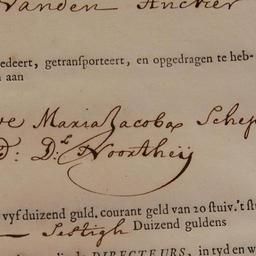 Vanden Anckier
edeert, getransporteert, en opgedragen te heb-
aan
Maria Jacoba Schep
D: D:r Noorthey
vyf duizend guld. courant geld van 20 stuiv. 't st
Sestigh Duizend guldens
DIRECTEURS, in tyd en w